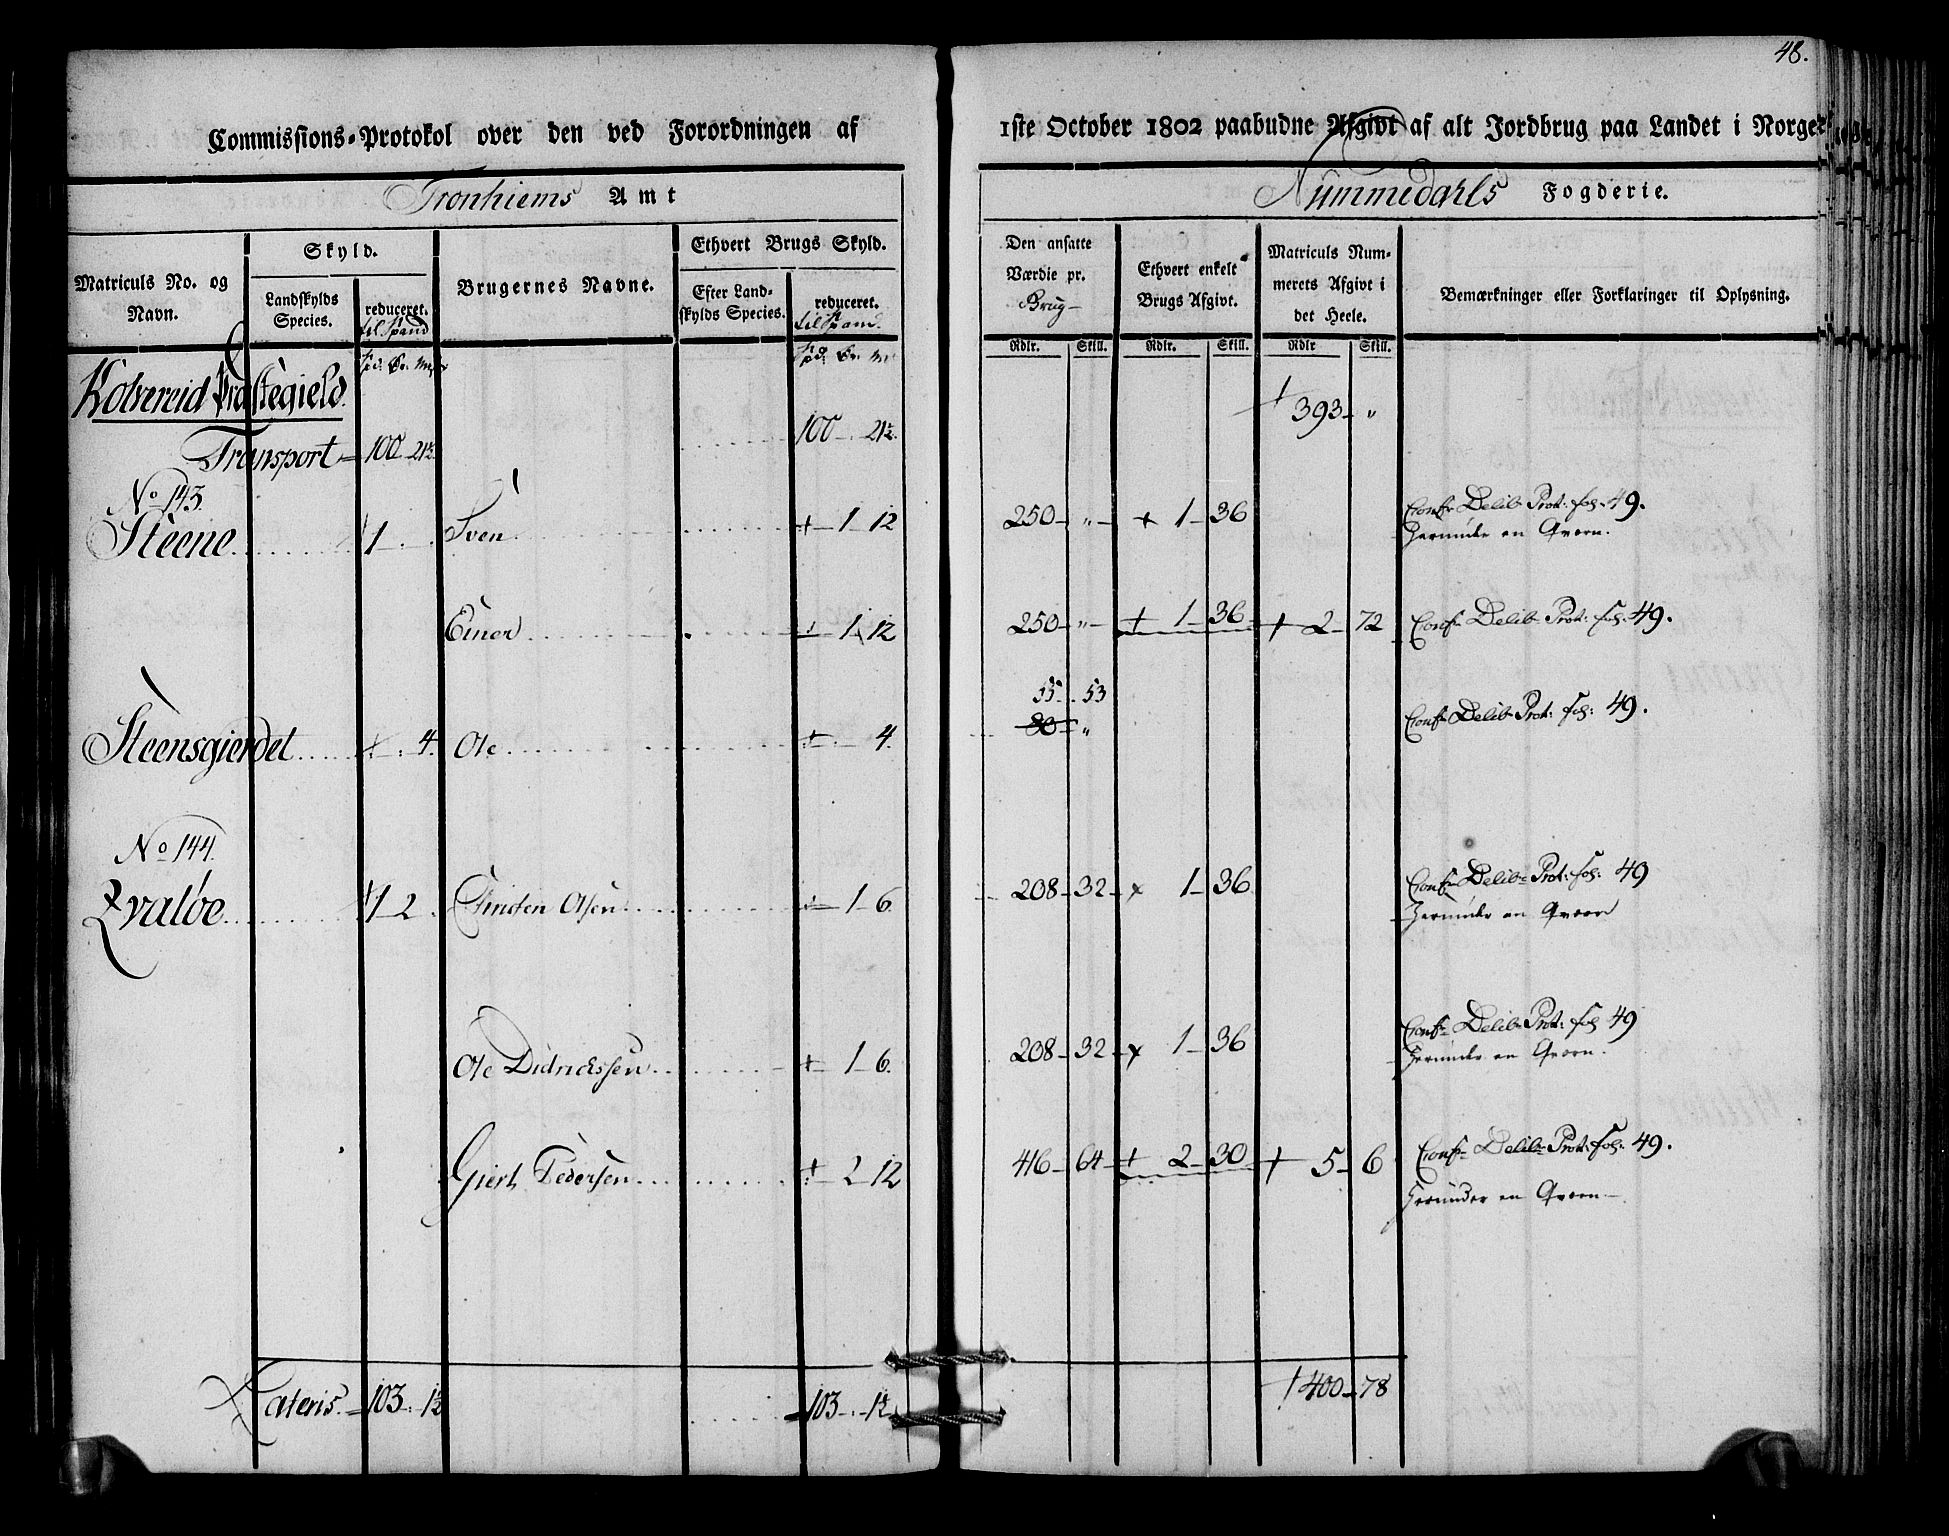 48.
Commissions-Protokol over den ved Forordningen af 1ste October 1802 paabudne Afgivt af alt Jordbrug paa Landet i Norge
Tronhiems Amt
Nummedahls Fogderie.
Matriculs No. og Navn.
Skyld.
Landskylds Species.
reduceret. til Spand
Brugernes Navne.
Ethvert Brugs Skyld.
Efter Landskylds Species.
reduceret. til Spand.
Den ansatte Værdie pr. Brug
Ethvert enkelt Brugs Afgivt.
Matriculs Nummerets Afgivt i det Heele.
Bemærkninger eller Forklaringer til Oplysning.
Rdlr. Skill. Rdlr. Skill. Rdlr Skill.
Kolvereid Præstegield.
Transport 100 - 2 1½ 100 - 2 1½. 393 - "
No 143.
Steene 1 - . Sven 1 - 12 250 - " - 1 - 36 Conf. Delib. Prot: fol. 49.
Herunder en Qvern.
Einer 1 12 250 - " - 1 - 36 2 - 72 Conf. Delib. Prot: fol. 49.
55. 53
Steensgierdet 4. Ole 4. 80 " Conf. Delib. Prot: fol: 49.
No 144.
Qvaløe 1 - 2 Finsten Olsen 1 - 6. 208 - 32 1 - 36 Conf. Delib. Prot: fol: 49
Herunder en Qvern
Ole Didrichssen 1 - 6. 208 - 32 1 - 36 Conf. Delib. Prot: fol 49
Herunder en Qvern.
Giert Pedersen 2 - 12 416 - 64 2 - 30 5 - 6 Conf. Delib. Prot: fol: 49.
Herunder en Qvern
Lateris 103 - 1½ 103 - 1½ 400 - 78